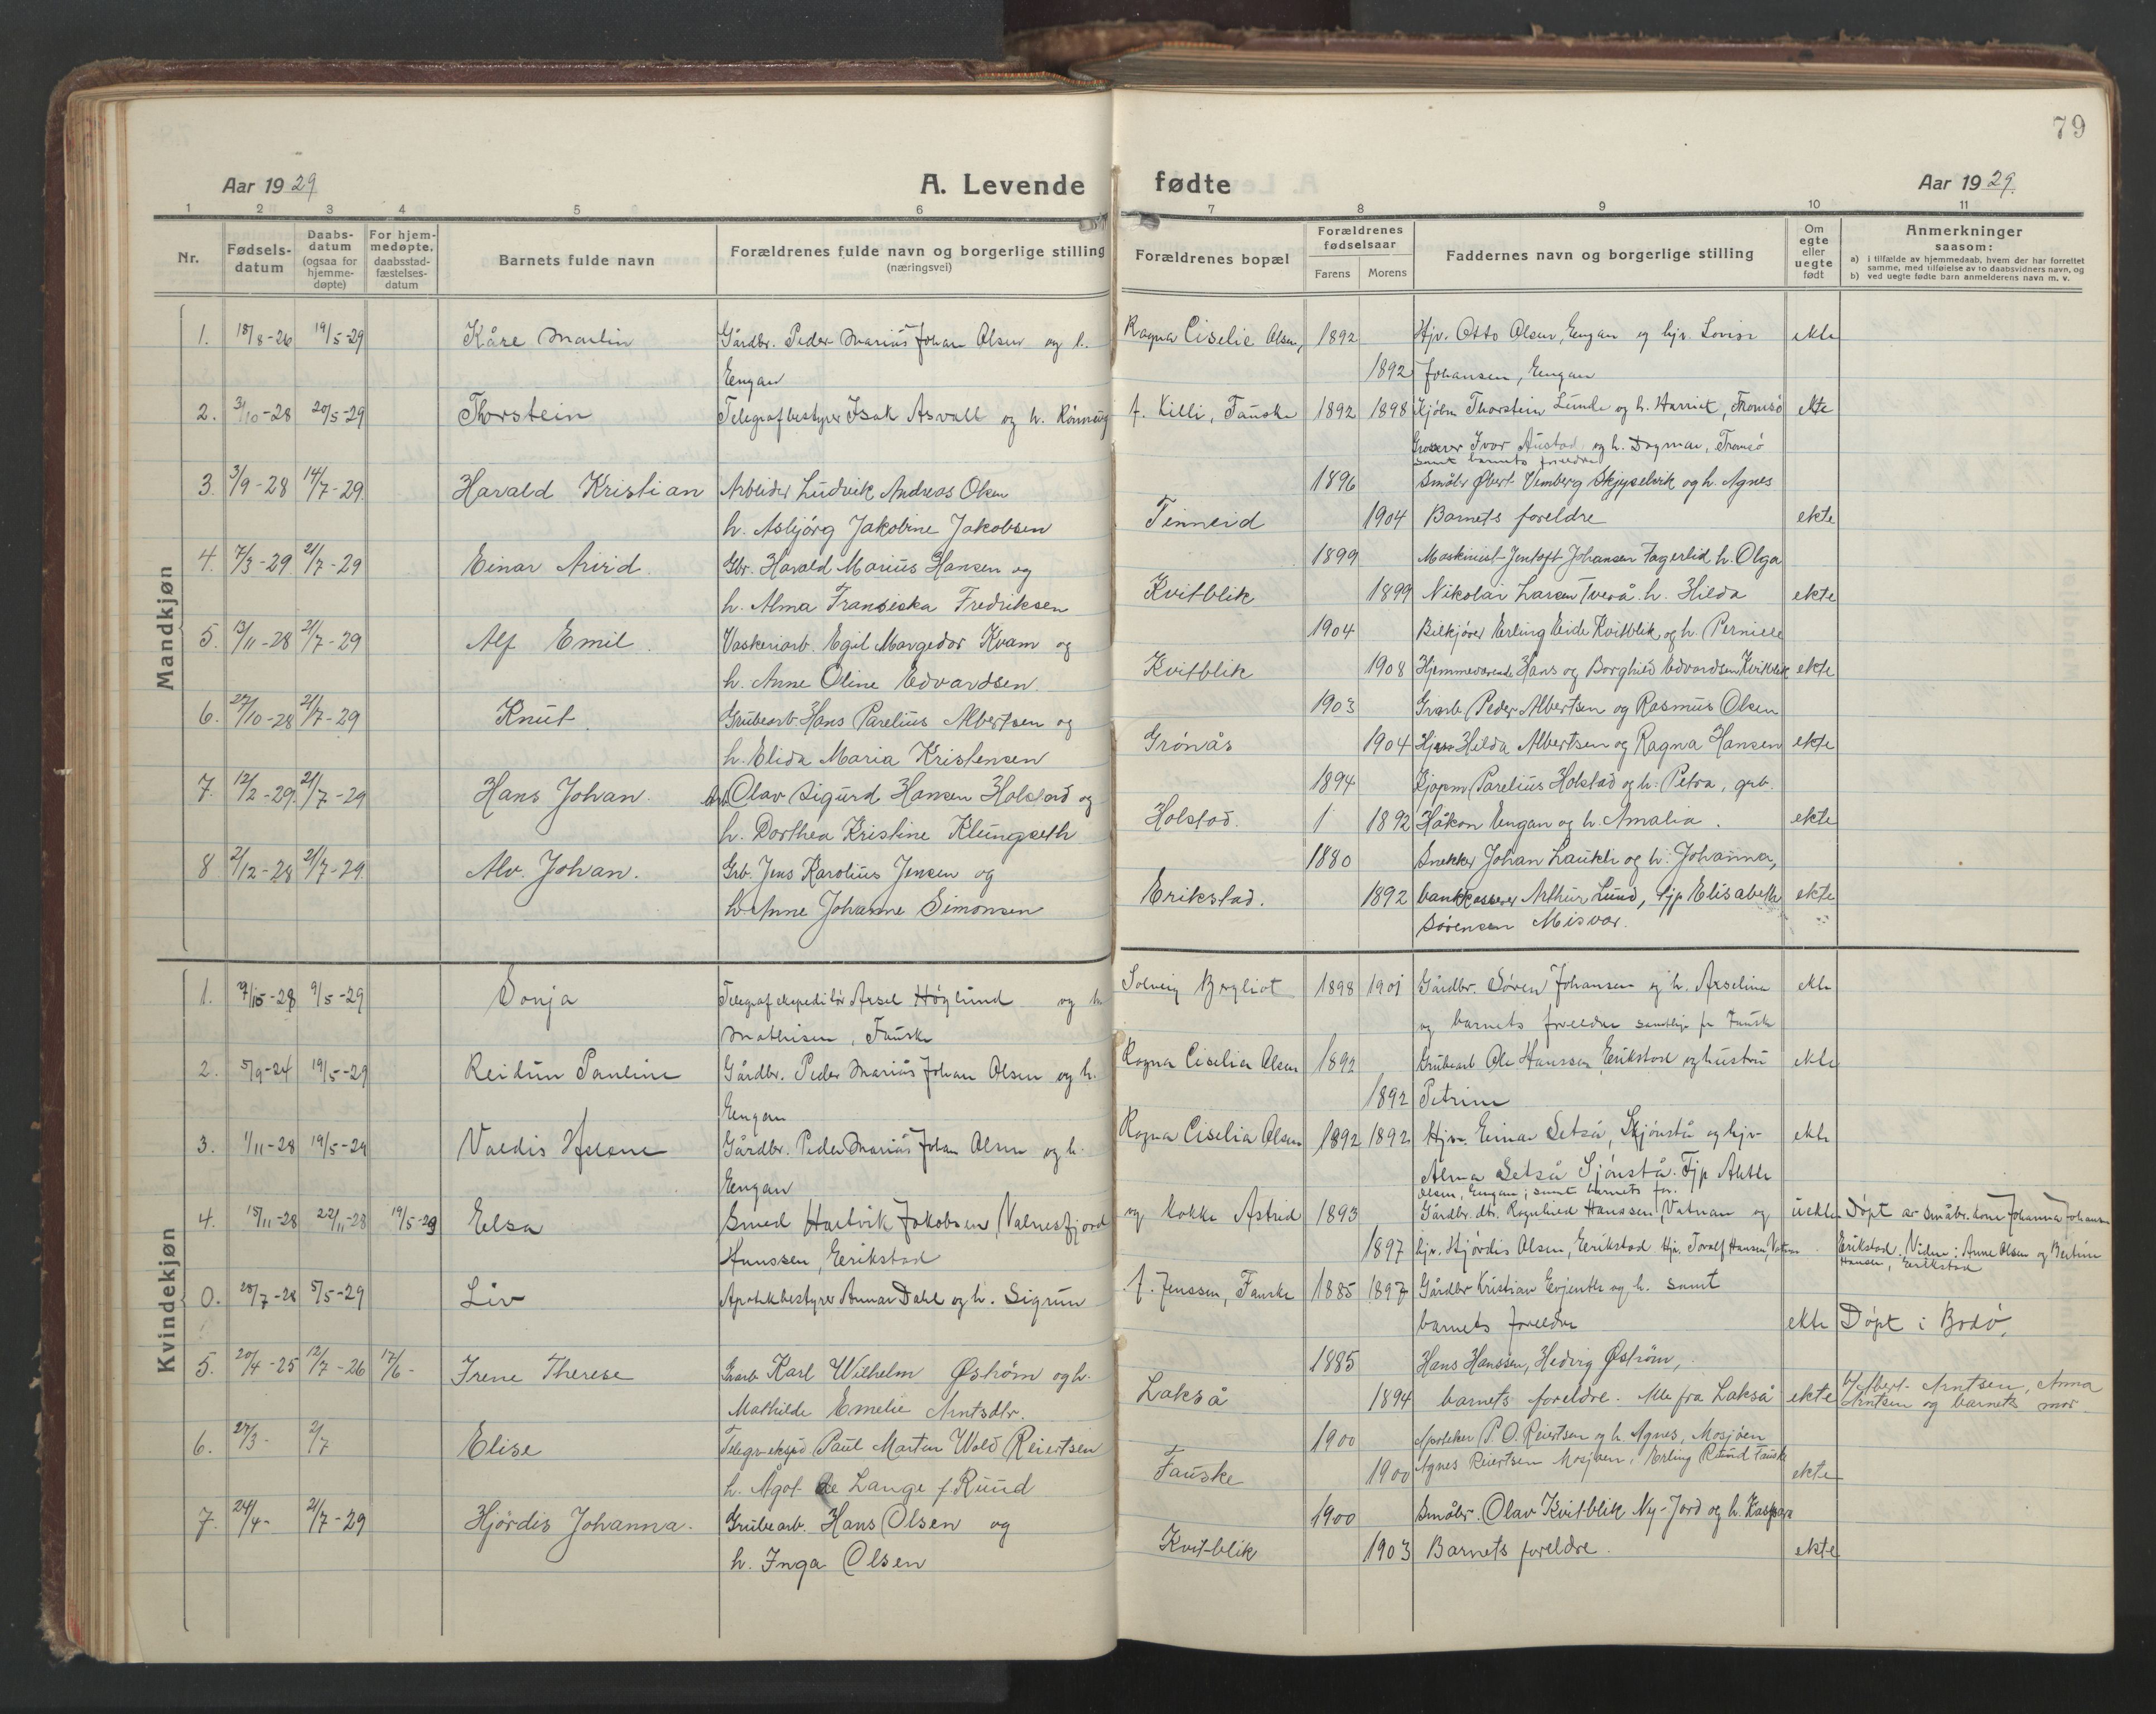 79
Aar 1929
A. Levende fødte
Aar 1929.
1 2 3 4 5 6 7 8 9 10 11
Nr.
Fødsels-datum
Daabs-datum (ogsaa for hjemme-døpte)
For hjem-medøpte, daabsstad-fæstelses-datum
Barnets fulde navn
Forældrenes fulde navn og borgerlige stilling (næringsvei)
Forældrenes bopæl
Forældrenes fødselsaar
Farens Morens
Faddernes navn og borgerlige stilling
Om egte eller uegte født
Anmerkninger saasom:
a) i tilfælde av hjemmedaab, hvem der har forrettet samme, med tilføielse av to daabsvidners navn, og
b) ved uegte fødte barn anmelderens navn m. v.
Mandkjøn
1. 18/8-26 19/5-29 Kåre Martin Gårdbr. Peder Marius Johan Olsen og h. Ragna Ciselie Olsen, 1892 Hjv. Otto Olsen, Engan og hjv. Lovise ekte
Engan 1892 Johansen, Engan
2. 31/10-28 20/5-29 Thorstein Telegrafbestyrer Isak Asvall og h. Rønnaug f. Killi, Fauske 1892 1898 Kjøbm Thorstein Lunde og h. Harriet, Tromsø ekte
Grosserer Ivar Austad og h. Dagmar, Tromsø
samt barnets foreldre
3. 3/9-28 14/7-29. Harald Kristian Arbeider Ludvik Andreas Olsen 1896 Småbr Øbert Vemberg Skjyselvik og h. Agnes
h. Asbjørg Jakobine Jakobsen Finneid 1904 Barnets foreldre ekte
4. 7/3-29. 21/7-29 Einar Arvid. Gbr. Harald Marius Hansen og 1899 Maskinist Jentoft Johansen Fagerlid h. Olga
h. Alma Fransiska Fredriksen Kvitblik 1899 Nikolai Larsen Tverå. h. Hilda ekte
5. 13/11-28 21/7-29 Alf Emil. Vaskeriarb. Egil Margedor Kvam og 1904 Bilkjører Erling Eide Kvitblik og h. Pernille
h. Anne Oline Edvardsen. Kvitblik 1908 Hjemmeværende Hans og Borghild Edvardsen Kvitblik ekte
6. 27/10-28 21/7-29 Knut. Grubearb. Hans Parelius Albertsen og 1903 Grarb. Peder Albertsen og Rasmus Olsen
h. Elida Maria Kristensen Grønås 1904 Hjev Hilda Albertsen og Ragna Hansen ekte
7. 12/2-29. 21/7-29 Hans Johan. Arb. Olav Sigurd Hansen Holstad og 1894 Kjøpm Parelius Holstad og h. Petra, grb.
h. Dorthea Kristine Klungseth Holstad. 1892 Håkon Engan og h. Amalia. ekte
8 2/12-28 21/7-29. Alv. Johan. Grb. Jens Karolius Jensen og 1880 Snekker Johan Laukli og h. Johanna,
h. Anne Johanne Simonsen Erikstad. 1892 bankkasserer Arthur Lund, tjp Elisabeth ekte
Sørensen Misvær.
Kvindekjøn
1. 9/5-29 Sonja Telegrafekspeditør Aksel Höglund og h Solveig Bergliot 1898 1901 Gårdbr. Søren Johansen og h. Axeline ekte
Mathisen, Fauske og barnets foreldre samtlige fra Fauske
2. 5/9-24 19/5-29 Reidun Pauline Gårdbr. Peder Marius Johan Olsen og h. Ragna Ciselia Olsen 1892 Grubearb Ole Hanssen Erikstad og hustru ekte
Engan 1892 Petrine
3. 1/11-28 19/5-29 Valdis Helene Gårdbr. Peder Marius Johan Olsen og h. Ragna Ciselia Olsen 1892 1892 Hjv. Einar Setså, Skjønstå og hjv. ekte
Engan Alma Setså Sjønstå. Tjp
Olsen, Engan, samt barnets for.
4. 15/11-28 22/11-28 19/5-29 Elsa Smed Hartvik Jakobsen, Valnesfjord og kokke Astrid 1893 Gårdbr. dtr. Ragnhild Hanssen, Vatnan og uekte Døpt av småbr. kone Johanna Johansen
Hanssen, Erikstad 1897 hjv. Hjørdis Olsen, Erikstad Hjv. Toralf Hansen, Vatnan Erikstad. Vidne: Anne Olsen og Bertine
Hansen, Erikstad
0. 28/7-28 5/5-29 Liv Apotekbestyrer Annar Dahl og h. Sigrun f. Jenssen, Fauske 1885 1897 Gårdbr Kristian Evjenth og h. samt
barnets foreldre ekte Døpt i Bodø,
5. 20/4-25 12/7-26 17/6- Irene Therese Grarb Karl Wilhelm Østrøm og h. 1885 Hans Hanssen, Hedvig Østrøm,
Mathilde Emelie Arntsdtr. Lakså 1894 barnets foreldre. Alle fra Lakså ekte v/ Albert Arntsen, Anna
Arntsen og barnets mor
6. 27/3- 2/7 Elise Telegr-eksped Paul Martin Wold Reiertsen 1900 Apoteker P.O. Reiertsen og h. Agnes, Mosjøen
h. Ågot de Lange f. Ruud Fauske 1900 Agnes Reiertsen Mosjøen, Erling Ruud Fauske ekte
7. 24/4- 21/7-29 Hjørdis Johanna. Grubearb. Hans Olsen og 1900 Småbr. Olav Kvitblik Ny-Jord og h. Kaspara
h. Inga Olsen Kvitblik 1903 Barnets foreldre. ekte